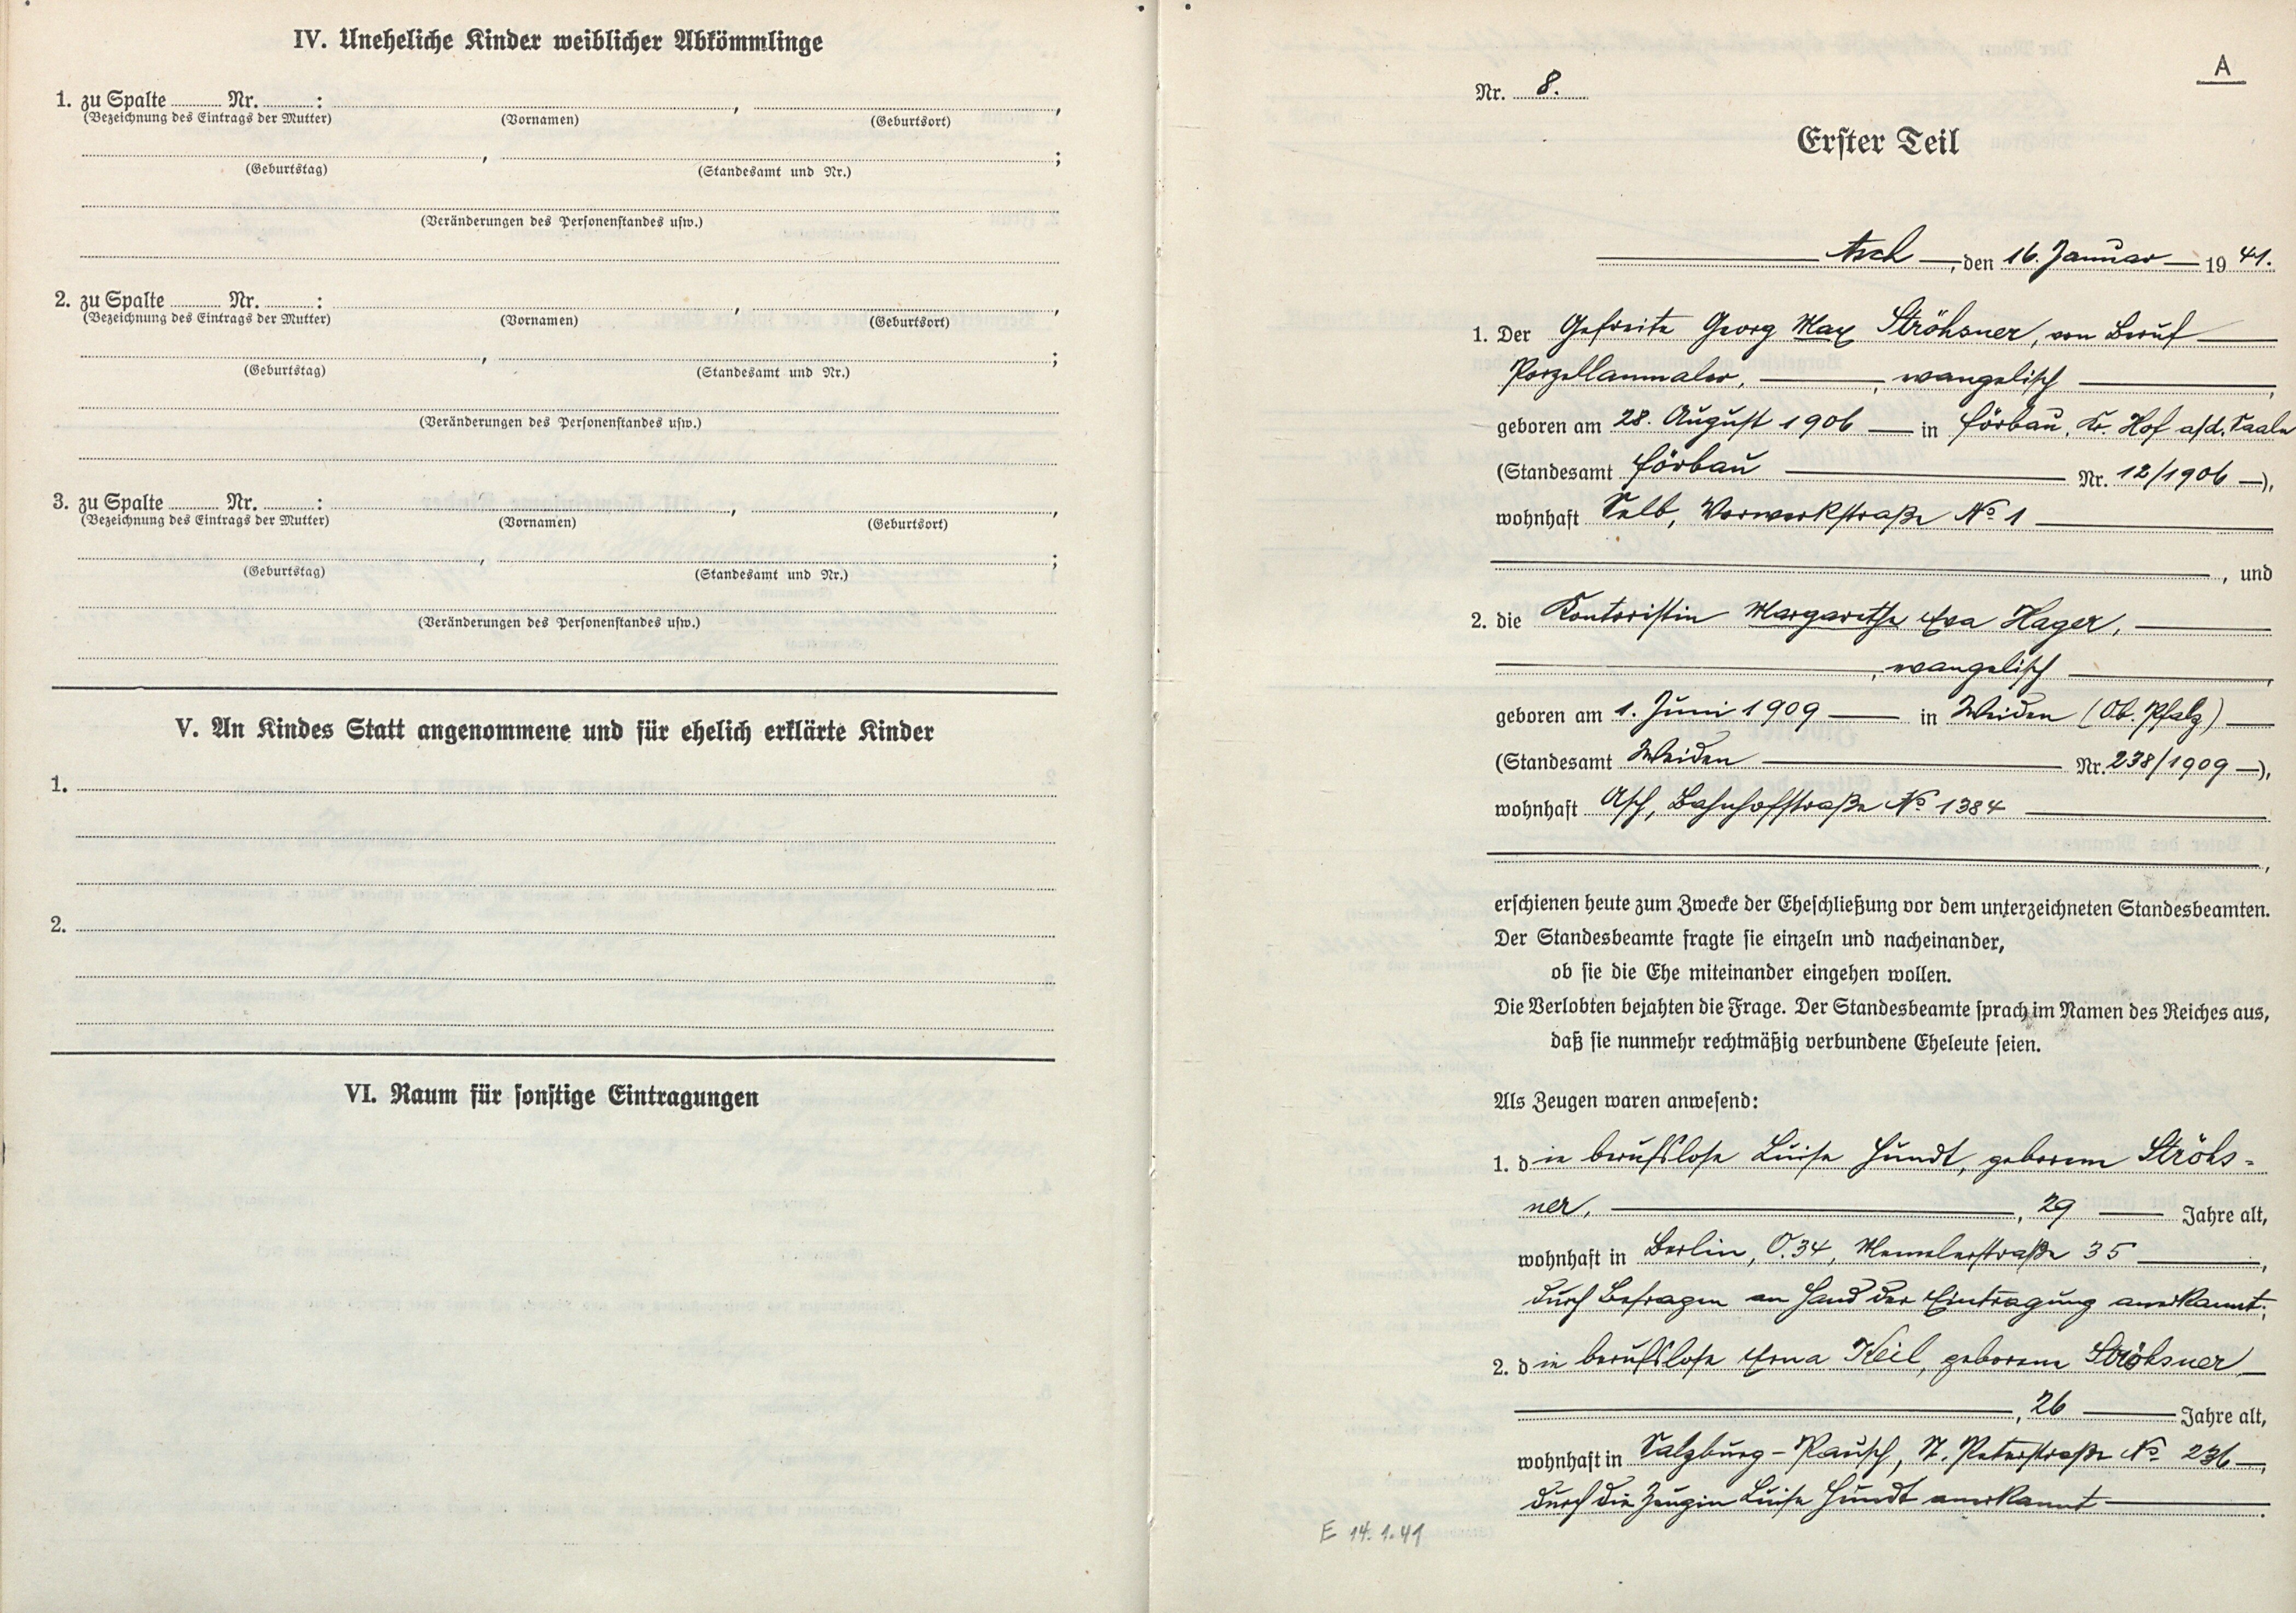 IV. Uneheliche Kinder weiblicher Abkömmlinge
1. zu Spalte ........ Nr. ........: ........, ........,
(Bezeichnung des Eintrags der Mutter) (Vornamen) (Geburtsort)
........, ........;
(Geburtstag) (Standesamt und Nr.)
(Veränderungen des Personenstandes usw.)
2. zu Spalte ........ Nr. ........: ........, ........,
(Bezeichnung des Eintrags der Mutter) (Vornamen) (Geburtsort)
........, ........;
(Geburtstag) (Standesamt und Nr.)
(Veränderungen des Personenstandes usw.)
3. zu Spalte ........ Nr. ........: ........, ........,
(Bezeichnung des Eintrags der Mutter) (Vornamen) (Geburtsort)
........, ........;
(Geburtstag) (Standesamt und Nr.)
(Veränderungen des Personenstandes usw.)
V. An Kindes Statt angenommene und für ehelich erklärte Kinder
1.
2.
VI. Raum für sonstige Eintragungen
A
Nr. 8.
Erster Teil
Asch, den 16. Januar 1941.
1. Der Gefreite Georg Max Ströhsner, von Beruf
Porzellanmaler, , evangelisch ,
geboren am 28. August 1906 in Förbau, Kr. Hof a/d. Saale
(Standesamt Förbau Nr. 12/1906),
wohnhaft Selb, Vorwerkstraße No 1
, und
2. die Kontoristin Margarethe Eva Hager,
, evangelisch ,
geboren am 1. Juni 1909 in Weiden (Ob. Pfalz)
(Standesamt Weiden Nr. 238/1909),
wohnhaft Asch, Bahnhofstraße No 1384
,
erschienen heute zum Zwecke der Eheschließung vor dem unterzeichneten Standesbeamten.
Der Standesbeamte fragte sie einzeln und nacheinander,
ob sie die Ehe miteinander eingehen wollen.
Die Verlobten bejahten die Frage. Der Standesbeamte sprach im Namen des Reiches aus,
daß sie nunmehr rechtmäßig verbundene Eheleute seien.
Als Zeugen waren anwesend:
1. die berufslose Luise Hundt, geborene Ströhs-
ner, , 29 Jahre alt,
wohnhaft in Berlin, O.34, Memelerstraße 35 ,
durch Befragen an Hand der Eintragung anerkannt;
2. die berufslose Erna Keil, geborene Ströhsner
, 26 Jahre alt,
wohnhaft in Salzburg - , St. Peterstraße No 236 ,
durch die Zeugin Luise Hundt anerkannt .
E 14.1.41